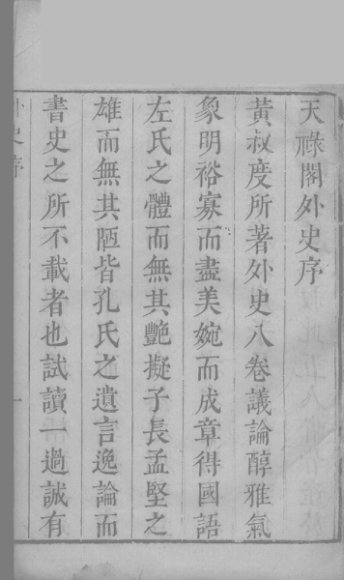 天祿閣外史序
黃叔度所著外史八卷議論醇雅氣
象明裕寡而盡美婉而成章得國語
左氏之體而無其艷擬子長孟堅之
雄而無其陋皆孔氏之遺言逸論而
書史之所不載者也試讀一過誠有
外史序
一